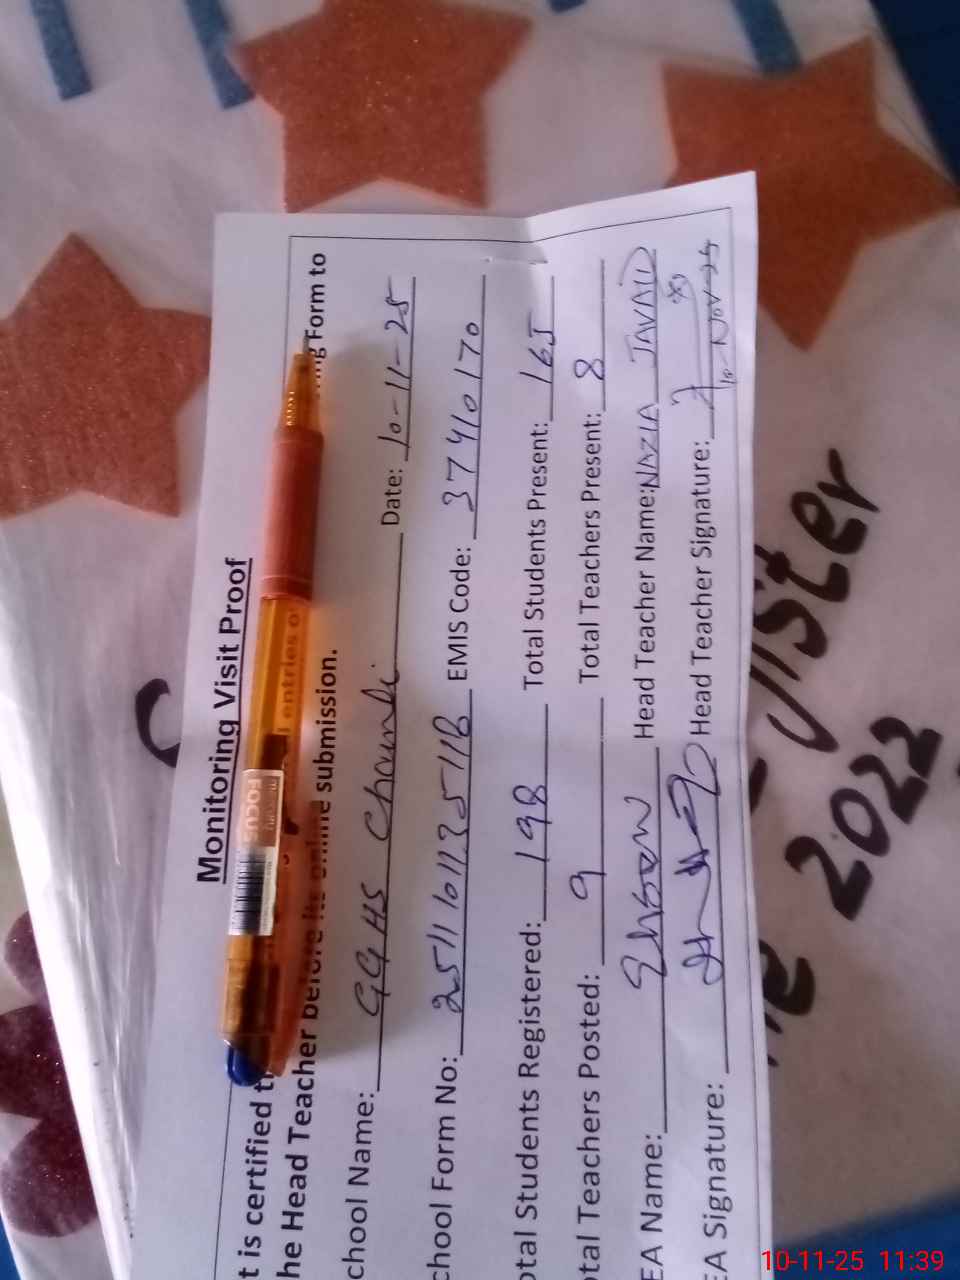 Monitoring Visit Proof
t is certified t entries o ng Form to
he Head Teacher before its online submission.
chool Name: GGHS Chambi Date: 10-11-25
chool Form No: EMIS Code: 37410170
otal Students Registered: 198 Total Students Present: 165
otal Teachers Posted: 9 Total Teachers Present: 8
EA Name: Head Teacher Name: NAZIA JAVAID
EA Signature: Head Teacher Signature:
10-NOV-25
FOCUS
2022
10-11-25 11:39